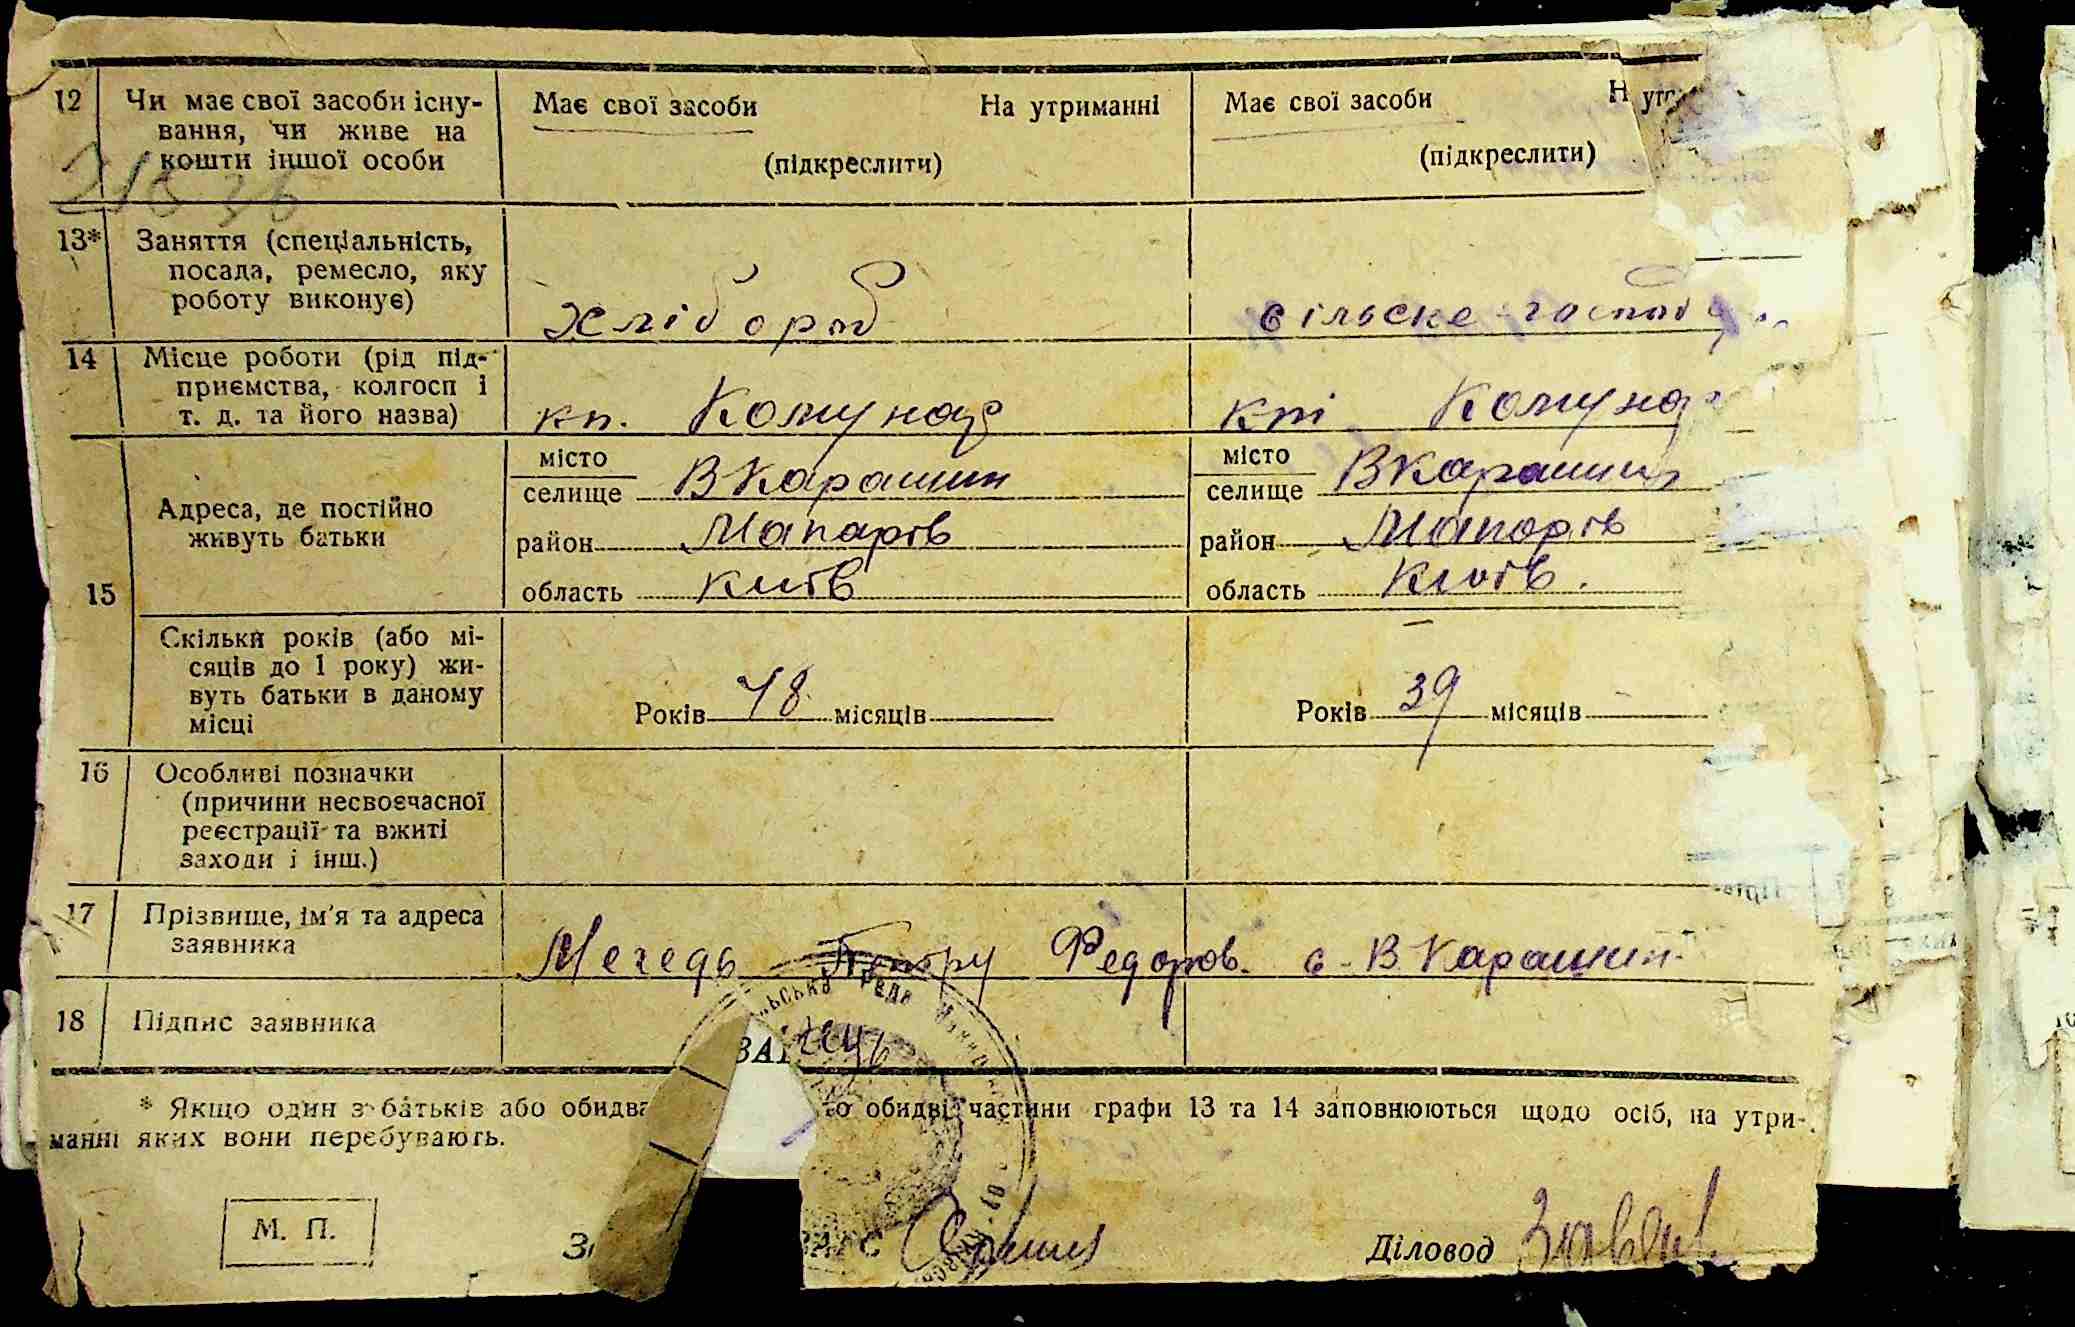 12 Чи має свої засоби існу- Має свої засоби На утриманні Має свої засоби
вання, чи живе на
кошти іншої особи (підкреслити) (підкреслити)
13* Заняття (спеціальність,
посада, ремесло, яку
роботу виконує) хлібороб сільське господ
14 Місце роботи (рід під-
приємства, колгосп і
т. д. та його назва) кп. Комунар Комунар
15 Адреса, де постійно
живуть батьки
місто місто
селище В Карашин селище В Карашин
район Макарів район Макарів
область Київ область Київ.
Скільки років (або мі-
сяців до 1 року) жи-
вуть батьки в даному
місці
Років 48 місяців Років 39 місяців
16 Особливі позначки
(причини несвоєчасної
реєстрації та вжиті
заходи і інш.)
17 Прізвище, ім'я та адреса
заявника Мегедь Федоров. с. В Карашин
18 Підпис заявника
* Якщо один з батьків або обидва обидві частини графи 13 та 14 заповнюються щодо осіб, на утри-
манні яких вони перебувають.
М. П.
Діловод